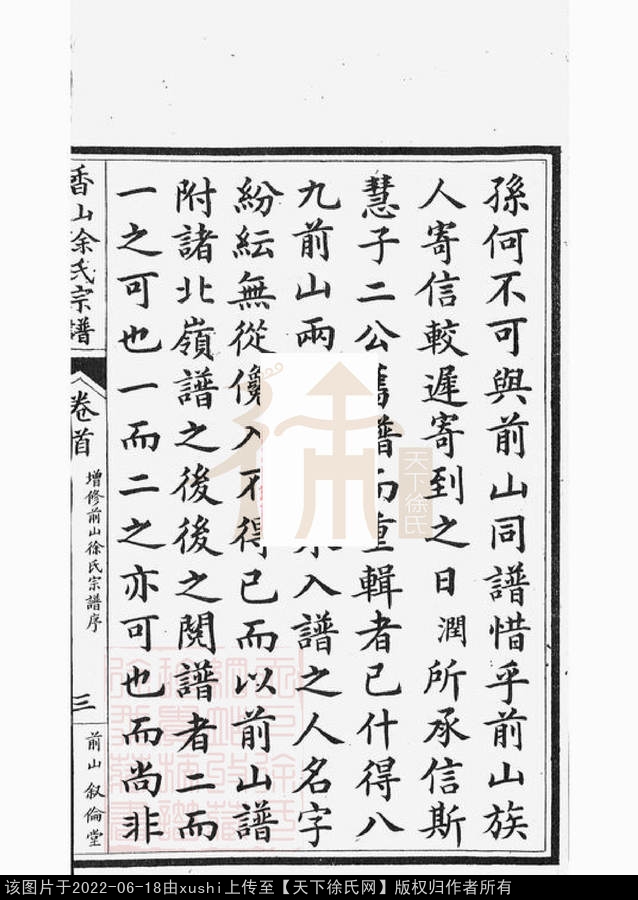 孫何不可與前山同譜惜乎前山族
人寄信較遲寄到之日潤所承信斯
慧子二公舊譜而重輯者已什得八
九前山兩入譜之人名字
紛紜無從儳入不得已而以前山譜
附諸北嶺譜之後後之閱譜者二而
一之可也一而二之亦可也而尚非
香山徐氏宗譜
卷首
增修前山徐氏宗譜序
三
前山 叙倫堂
天下徐氏
该图片于2022-06-18由xushi上传至【天下徐氏网】版权归作者所有